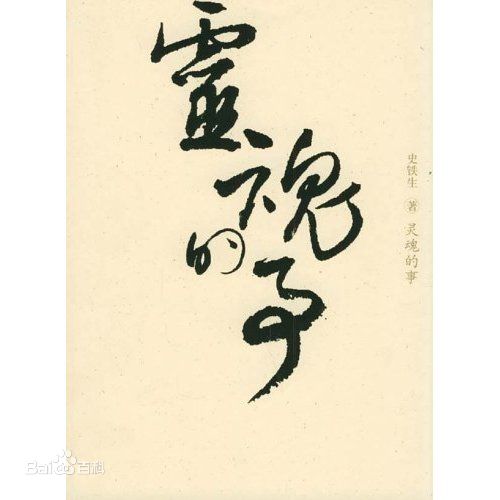 靈魂的事
史铁生 著 灵魂的事
Bai百科